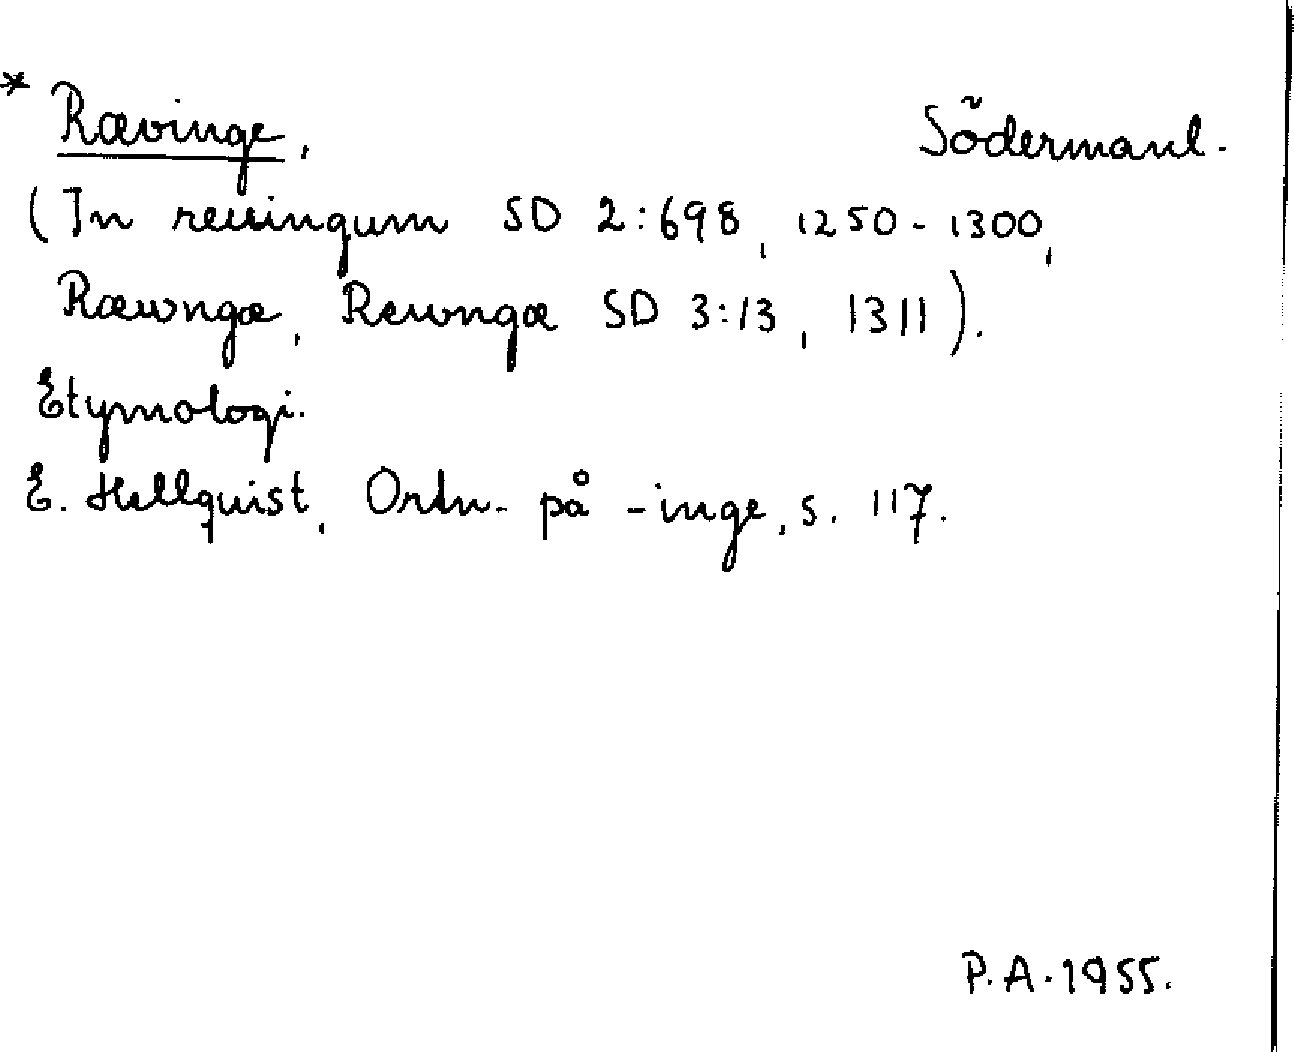 * Rævinge, Södermanl.
(In reuingum SD 2:698, 1250-1300,
Ræwngæ, Rewngæ SD 3:13, 1311).
Etymologi.
E. Hellquist, Ortn. på -inge, s. 117.
P.A. 1955.